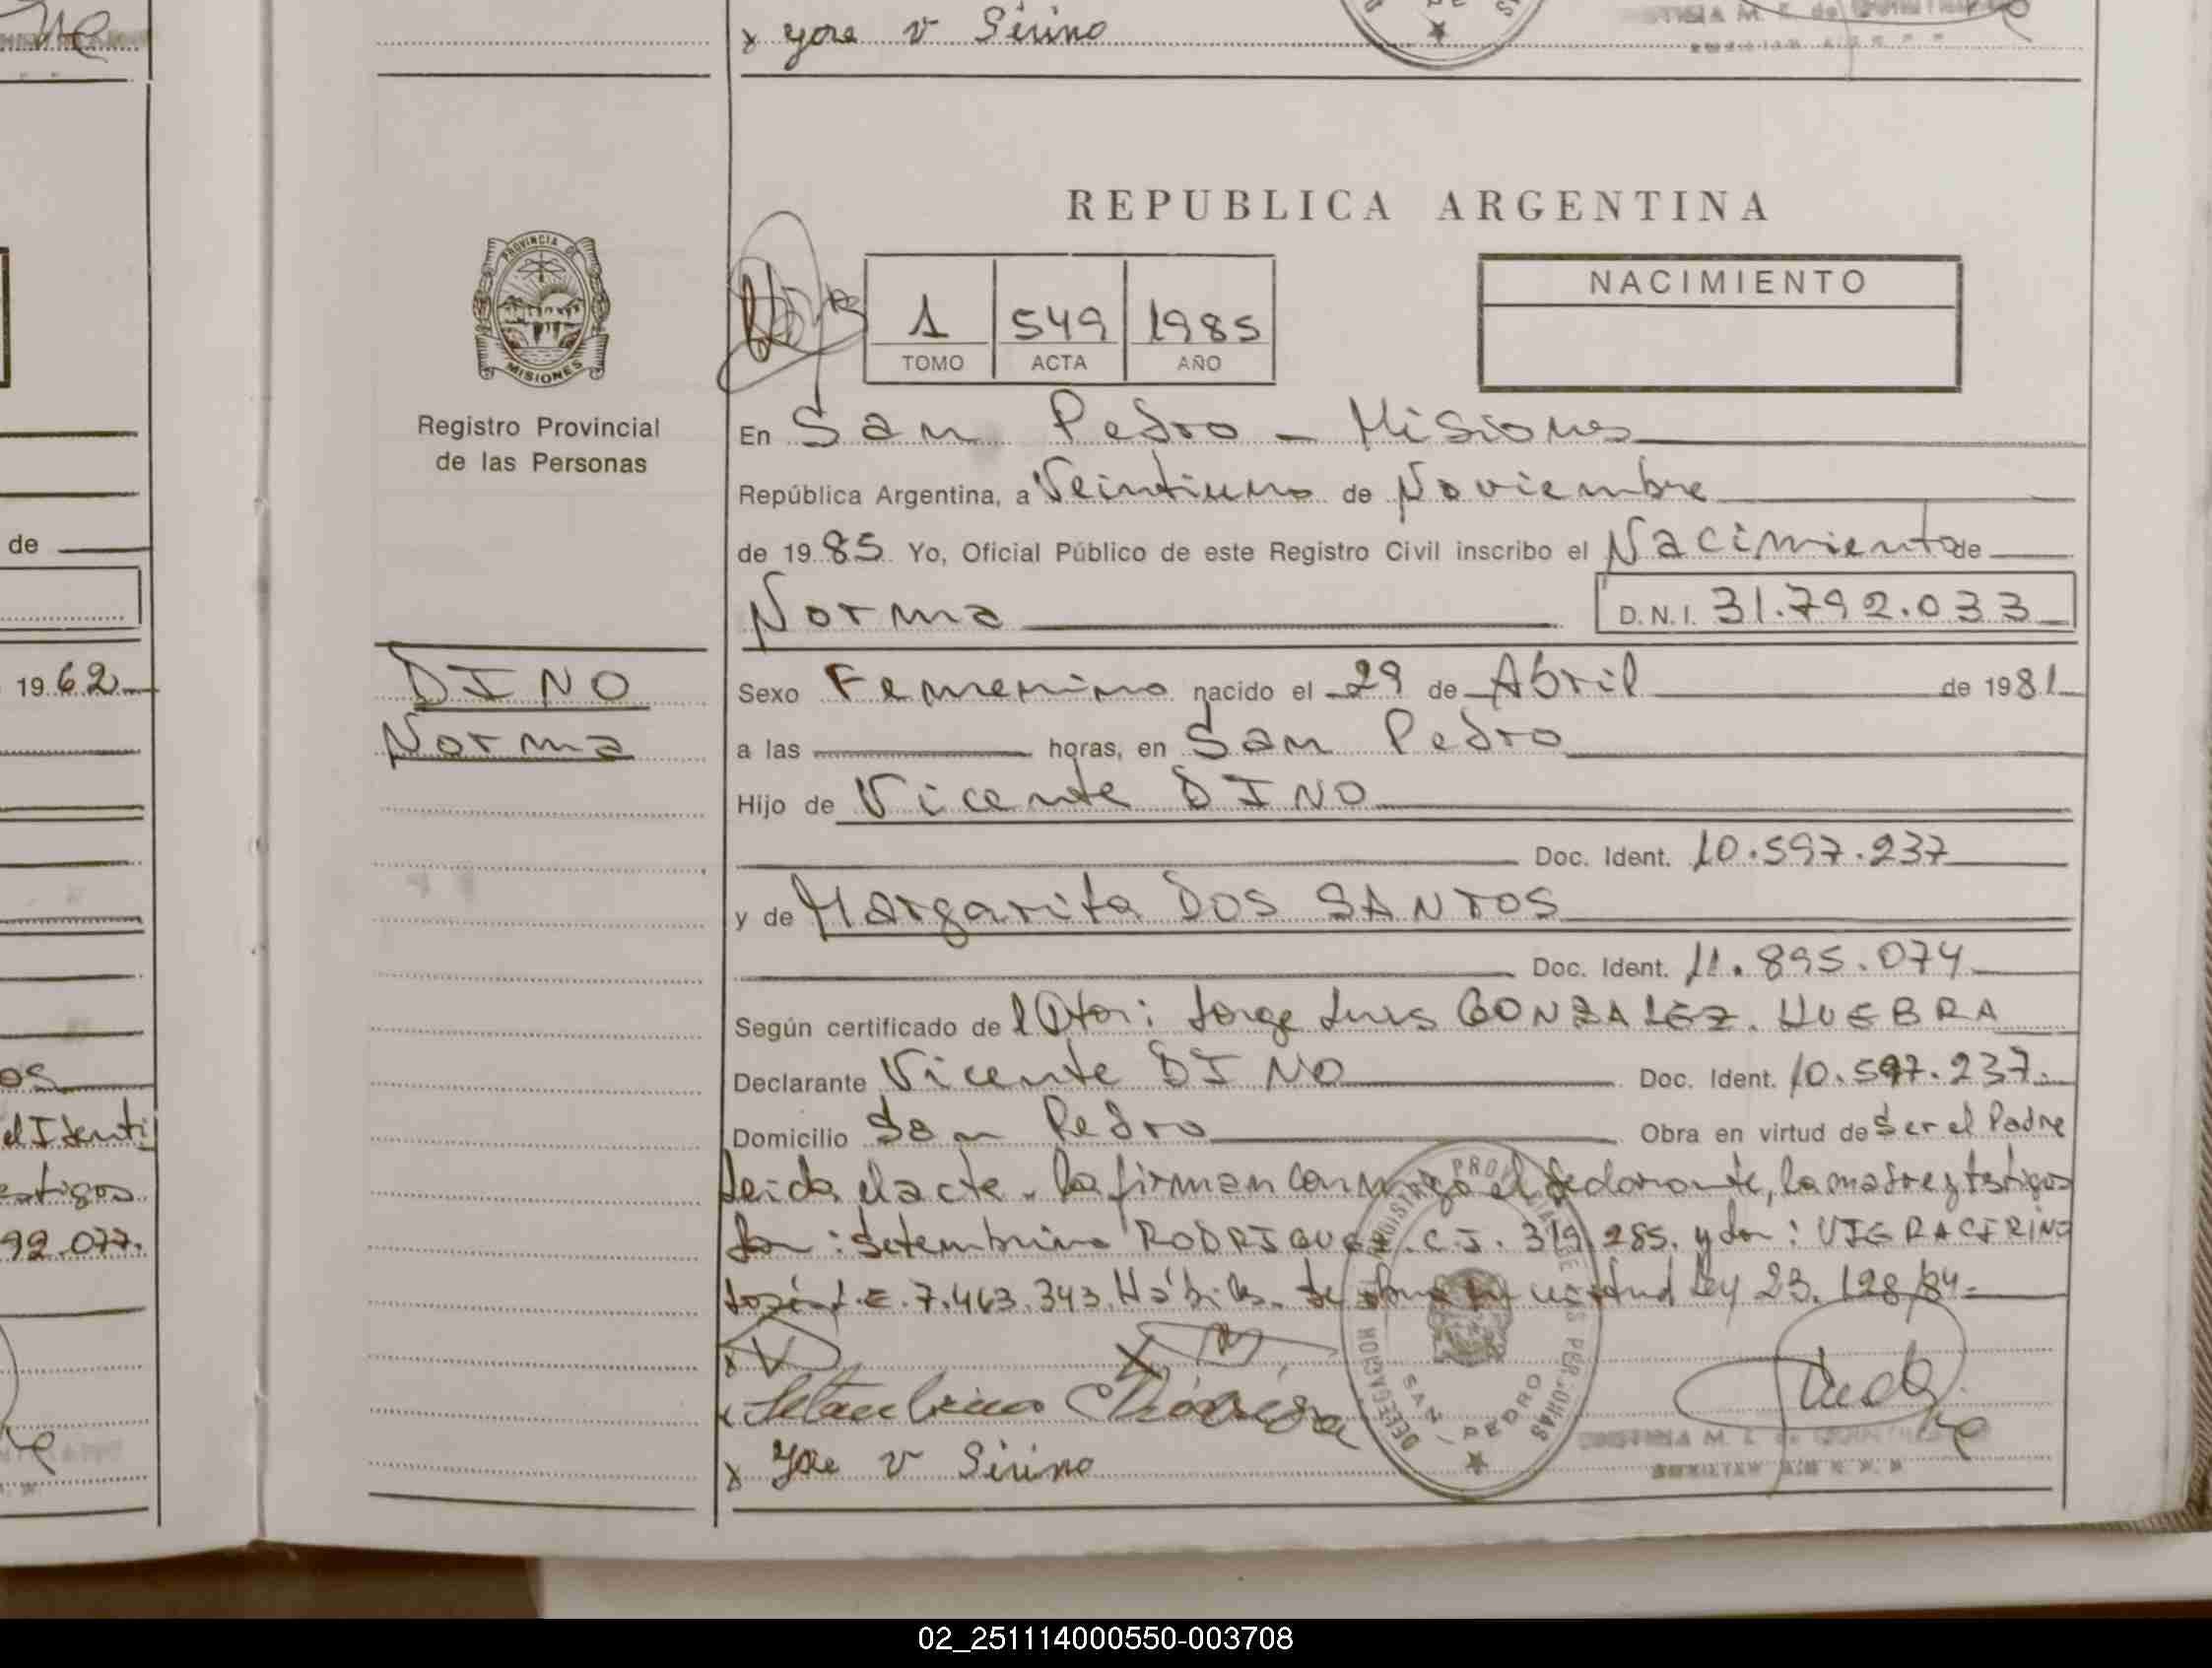 x yore v Sirino
REPUBLICA ARGENTINA
PROVINCIA DE
MISIONES
Registro Provincial
de las Personas
1 549 1985
TOMO ACTA AÑO
NACIMIENTO
En San Pedro - Misiones
República Argentina, a Veintiuno de Noviembre
de 1985 Yo, Oficial Público de este Registro Civil inscribo el Nacimiento de
Norma D.N.I. 31.792.033
DINO
Norma
Sexo Femenino nacido el 29 de Abril de 1981
a las horas, en San Pedro
Hijo de Vicente DINO
Doc. Ident. 10.597.237
y de Margarita DOS SANTOS
Doc. Ident. 11.895.074
Según certificado de l Dtor: Jorge Luis GONZALEZ HUEBRA
Declarante Vicente DINO Doc. Ident. 10.597.237.
Domicilio San Pedro Obra en virtud de Ser el Padre
Leida el acta la firman conmigo el declarante, la madre y testigos
Don: Setembrino RODRIGUEZ C.I. 319.285. y don: VIERA CIRINO
José L.E. 7.463.343 Hábiles. Se en virtud Ley 23.128/84=
x Setembrino
x yore v Sirino
SAN PEDRO
de
1962
os
el Identi
estigos
92.077.
02_251114000550-003708